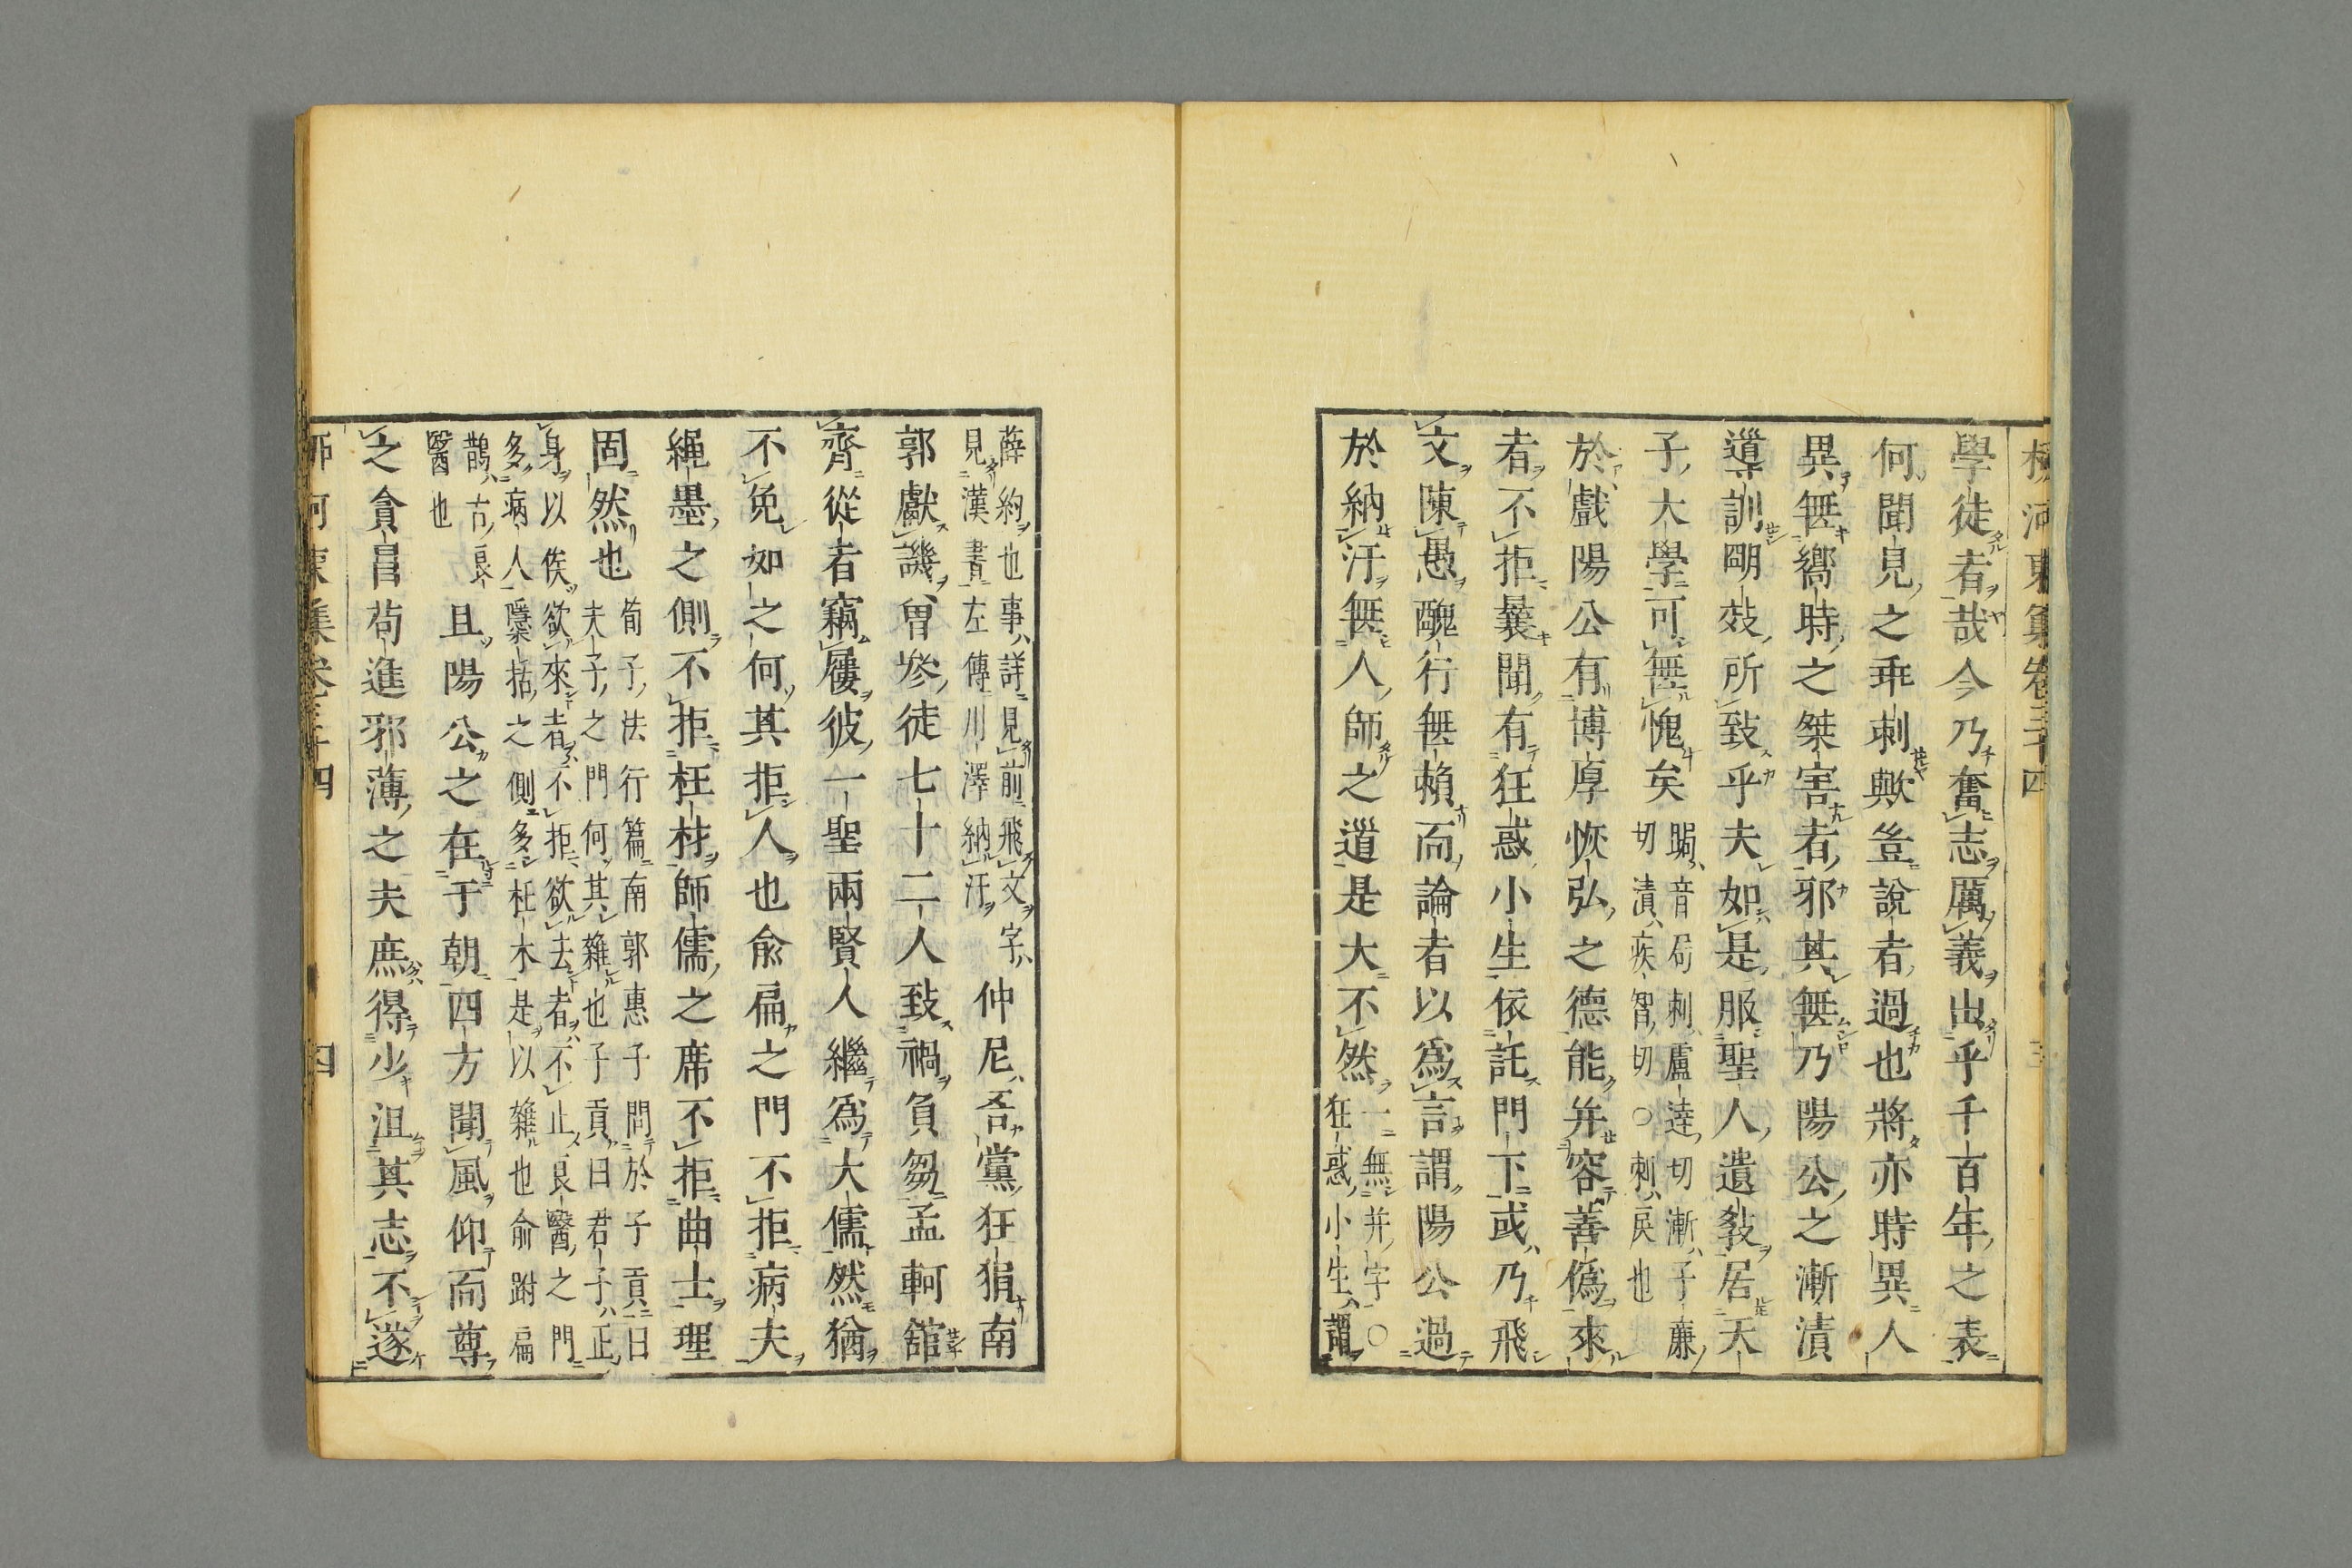 柳河東集卷三十四　三
學徒者哉今乃奮志厲義出乎千百年之表
何聞見之乖剌歟豈說者過也將亦時異人
異無嚮時之桀害者邪其無乃陽公之漸漬
導訓明效所致乎夫如是服聖人遺敎居天
子大學可無愧矣跼音局剌盧達切漸子廉切漬疾智切○剌戾也
於戲陽公有博厚恢弘之德能并容善僞來
者不拒曩聞有狂惑小生依託門下或乃飛
文陳愚醜行無賴而論者以爲言謂陽公過
於納汙無人師之道是大不然一無并字○狂惑小生謂
薛約也事詳見前飛文字見漢書左傳川澤納汙仲尼吾黨狂狷南
郭獻譏曾參徒七十二人致禍負芻孟軻舘
齊從者竊屨彼一聖兩賢人繼爲大儒然猶
不免如之何其拒人也兪扁之門不拒病夫
繩墨之側不拒枉材師儒之席不拒曲士理
固然也荀子法行篇南郭惠子問於子貢曰夫子之門何其雜也子貢曰君子正
身以俟欲來者不拒欲去者不止良醫之門多病人檃括之側多枉木是以雜也兪跗扁
鵲古良醫也且陽公之在于朝四方聞風仰而尊
之貪冒苟進邪薄之夫庶得少沮其志不遂
柳河東集卷三十四　四